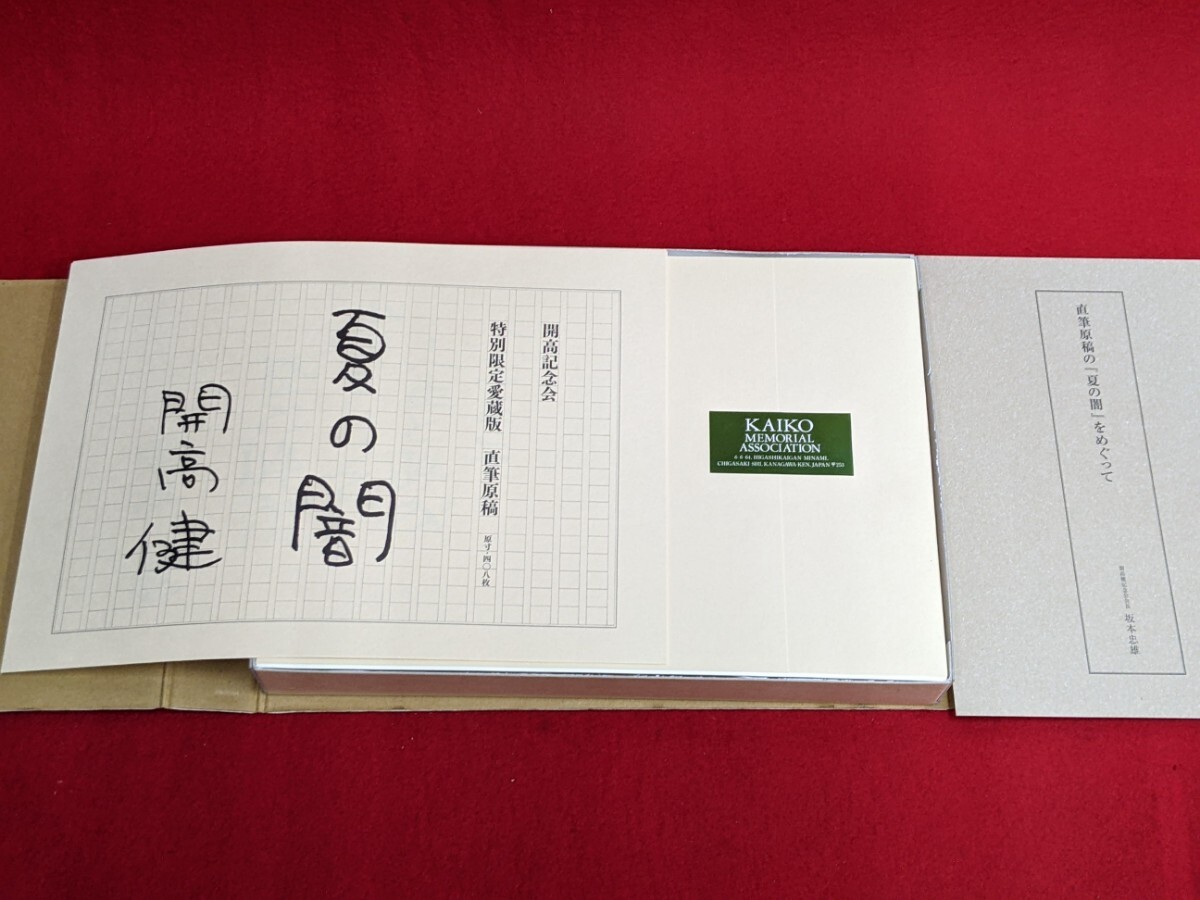 開高記念会
特別限定愛蔵版 直筆原稿 原寸・四〇八枚
夏の闇
開高健
KAIKO
MEMORIAL
ASSOCIATION
6-6-64, HIGASHIKAIGAN MINAMI,
CHIGASAKI SHI, KANAGAWA KEN, JAPAN 〒253
直筆原稿の『夏の闇』をめぐって
坂本忠雄